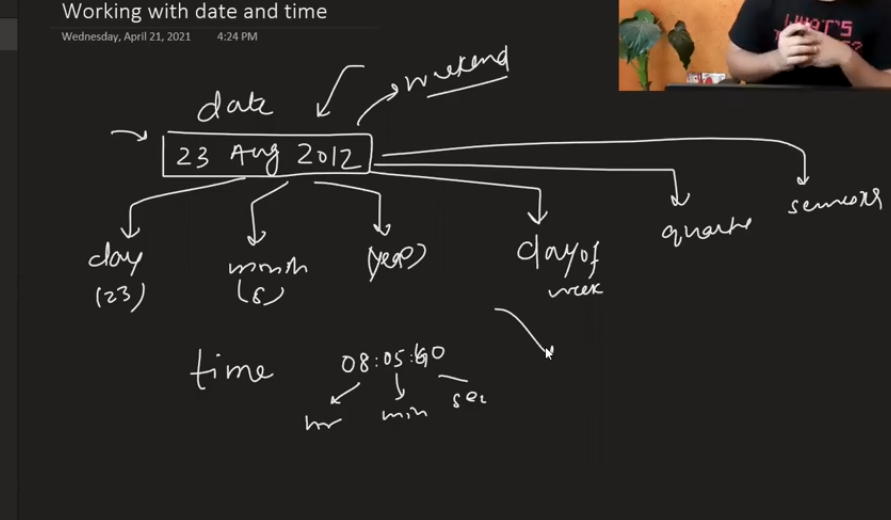 Working with date and time
Wednesday, April 21, 2021 4:24 PM
WHAT'S
date
weekend
23 Aug 2012
day
(23)
month
(8)
(year)
day of
week
quarter
time
08:05:
hr
min
sec